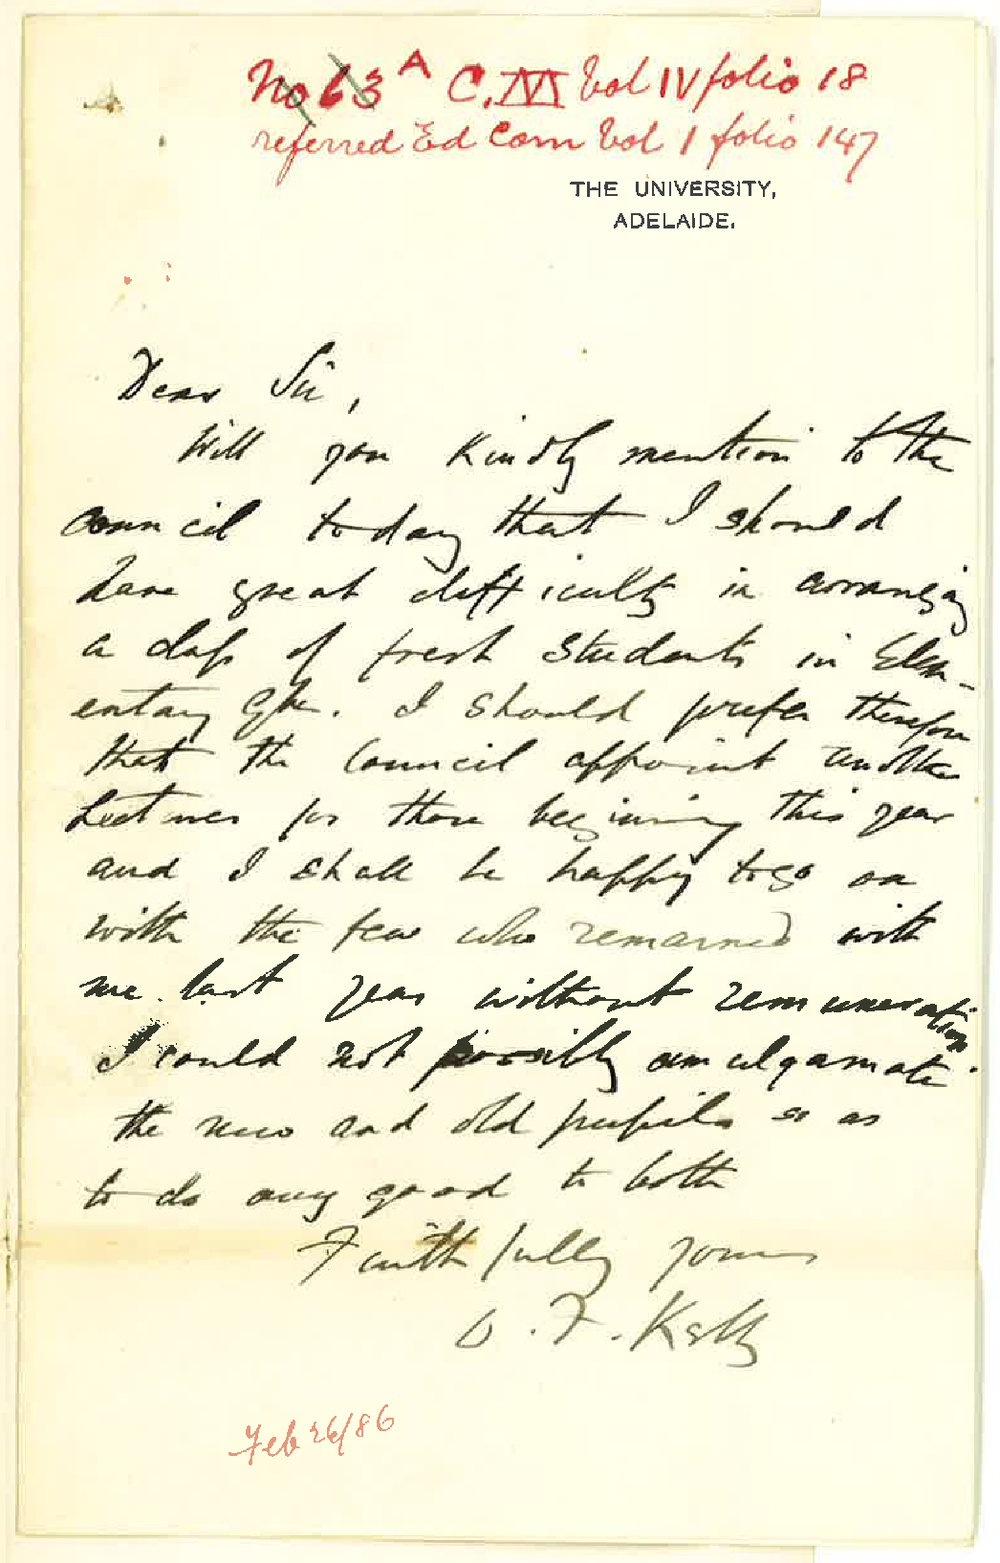 No 63 A C. XVI Vol IV folio 18
referred Ed Com Vol 1 folio 147
THE UNIVERSITY,
ADELAIDE.
Dear Sir,
Will you kindly mention to the
Council today that I should
have great difficulty in arranging
a class of fresh students in Elem-
entary Gk. I should prefer therefore
that the Council appoint another
Lecturer for those beginning this year
and I shall be happy to go on
with the few who remained with
me last year without remuneration.
I could not possibly amalgamate
the new and old pupils so as
to do any good to both
Faithfully yours
D. F. Kelly
Feb 26/86